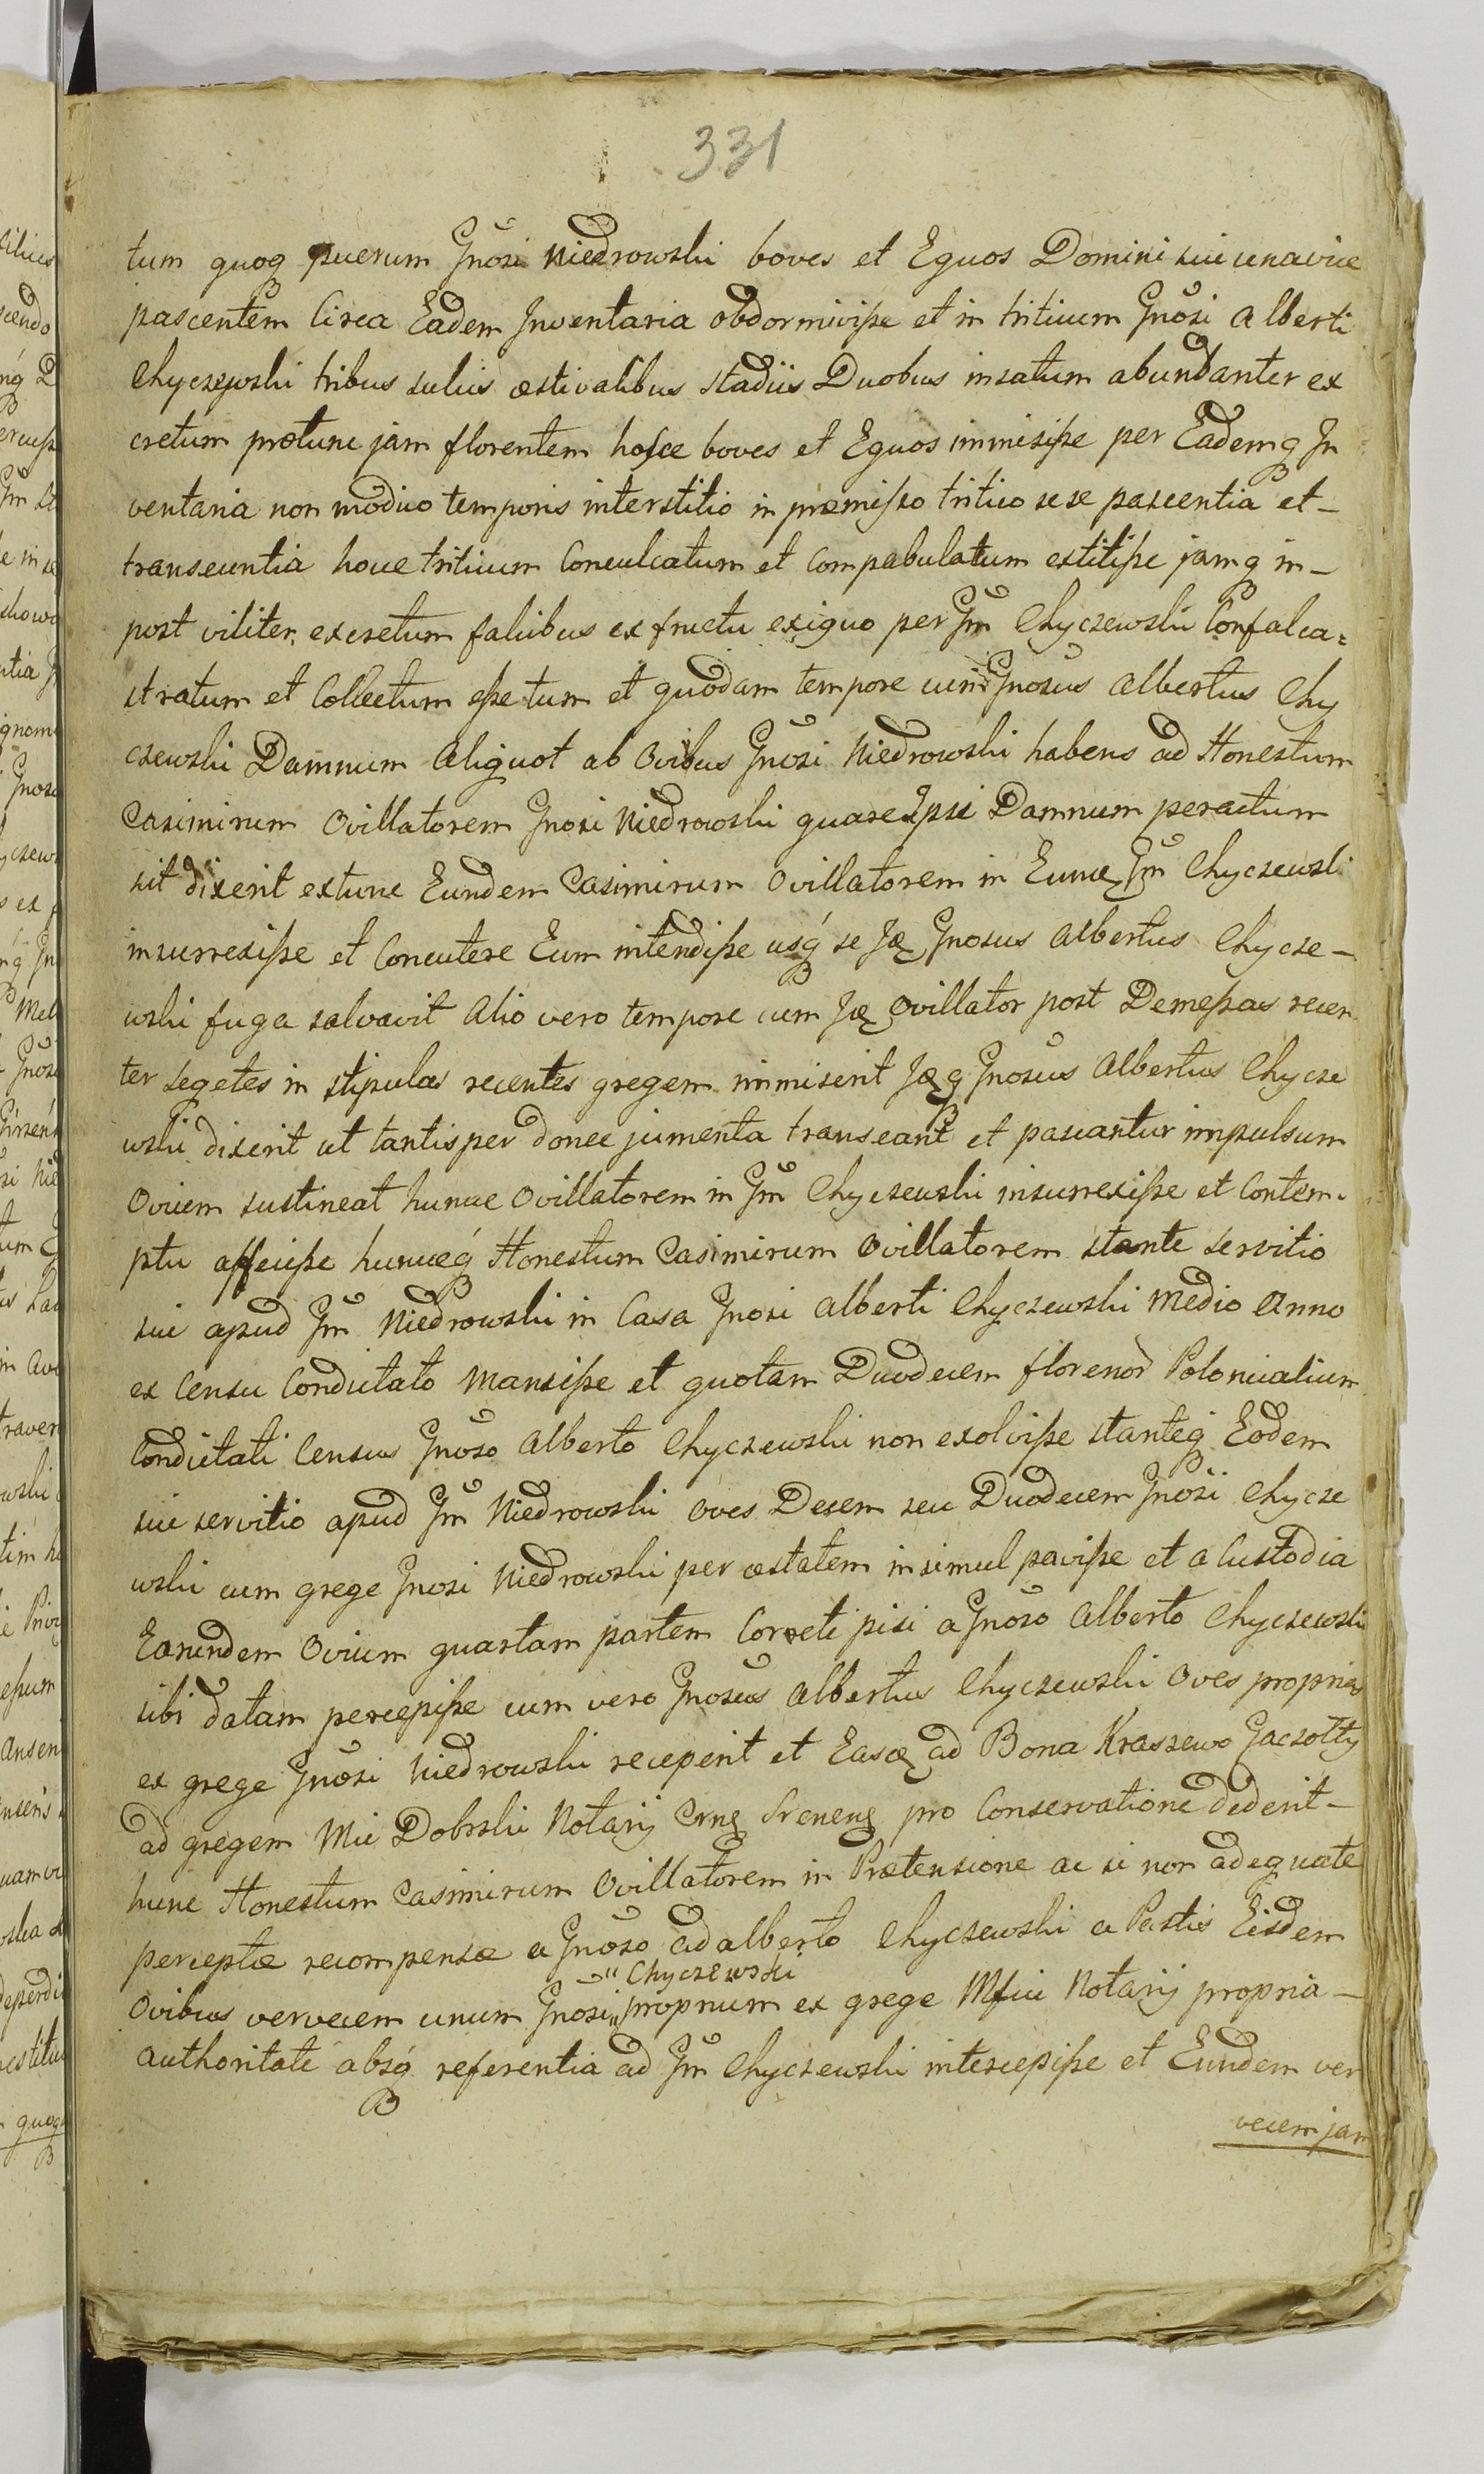 331
tum quoq puerum Gnosi Niedrowski boves et Equos Domini sui una vice
pascentem Circa Eadem Inventaria obdormivisse et in triticum Gnosi Alberti
Chyczewski tribus sulcis æstivalibus stadiis Duobus insatum abundanter ex
cretum prœtunc jam florentem hosce boves et Equos immisisse per Eademq In
ventaria non modico temporis interstitio in præmisso tritico sese pascentia et –
transeuntia hocce triticum Conculcatum et Compabulatum extitisse jamq in –
post viliter excretum falcibus ex fructu exiguo per Gm Chyczewski Confalca =
stratum et Collectum esse tum et quodam tempore cum Gnosus Albertus Chy
czewski Damnum Aliquot ab Ovibus Gnosi Niedrowski habens ad Honestum
Casimirum Ovillatorem Gnosi Niedrowski quare Ipsi Damnum peractum
sit dixerit extunc Eundem Casimirum Ovillatorem in Eunce Gm Chyczewski
insurrexisse et Concutere Eum intendisse usq se Gnosus Albertus Chycze –
wski fuga salvavit Alio vero tempore cum Ovillator post Demessas recen
ter segetes in stipulas recentes gregem immiserit Gnosus Albertus Chycze
wski dixerit ut tantisper donec jumenta transeant et pascantur impulsum
Ovium sustineat hunce Ovillatorem in Gm Chyczewski insurrexisse et Contem.
ptu affecisse hunceq Honestum Casimirum Ovillatorem stante servitio
sui apud Gm Niedrowski in Casa Gnosi Alberti Chyczewski medio Anno
ex Censu Condictato mansisse et quotam Duodecem florenor Polonicalium
Condictati Census Gnoso Alberto Chyczewski non exolvisse stanteq Eodem
sui servitio apud Gm Niedrowski oves Decem seu Duodecem Gnosi Chycze
wski cum grege Gnosi Niedrowski per æstatem insimul pavisse et a Custodia
Earundem Ovium quartam partem Coreti pisi a Gnoso Alberto Chyczewski
sibi datam percepisse cum vero Gnosus Albertus Chyczewski Oves proprias
ex grege Gnosi Niedrowski receperit et Easce ad Bona Kraszewo Gaczołty
ad gregem Mci Dobrski Notarij pro Conservatione dederit –
hunc Honestum Casimirum Ovillatorem in Prætensione ac si non adequate
perceptæ recompensæ a Gnoso Adalberto Chyczewski a Pastis Eisdem
Chyczewski
Ovibus vervecem unum Gnosi proprium ex grege Mfici Notarij propria –
authoritate absq referentia ad Gm Chyczewski intercepisse et Eundem ver
vecem jam